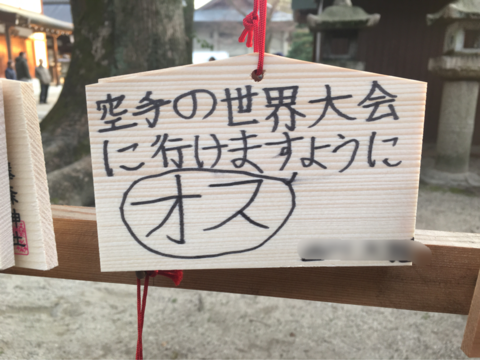 空手の世界大会
に行けますように
オス